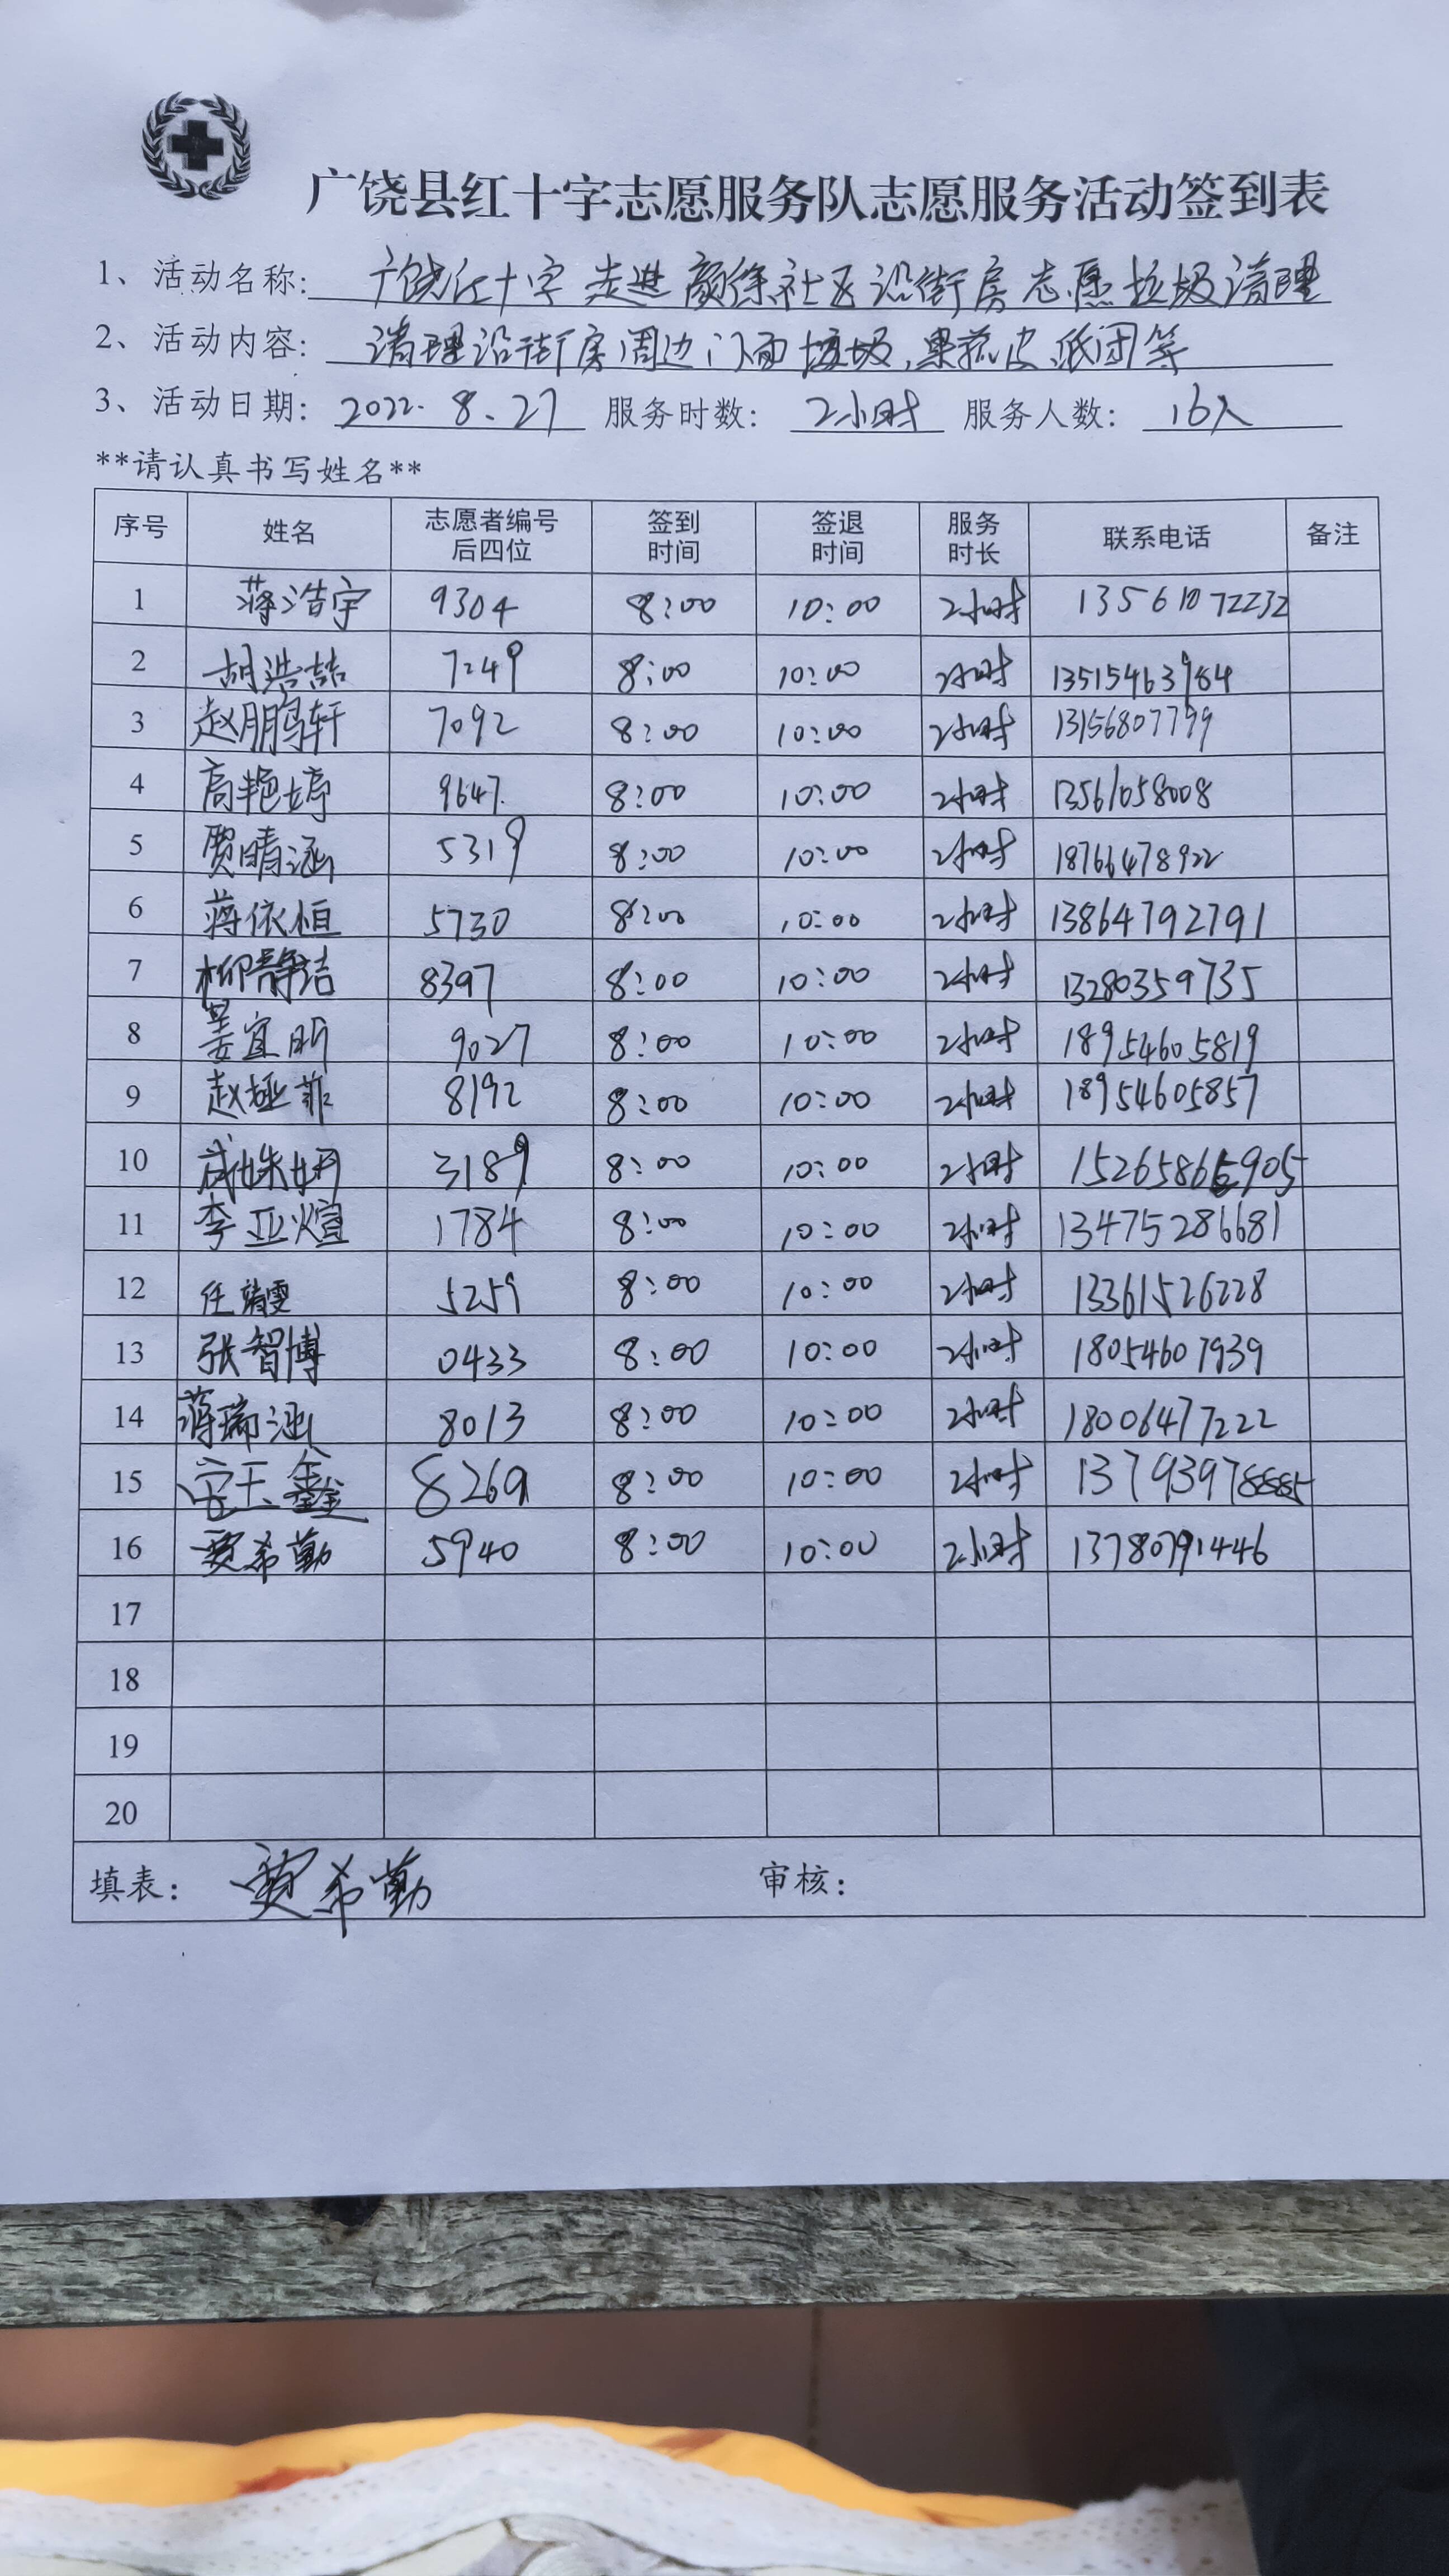 广饶县红十字志愿服务队志愿服务活动签到表
1、活动名称: 广饶红十字走进颜徐社区沿街房志愿垃圾清理
2、活动内容: 清理沿街房周边门面垃圾,果蔬皮,纸团等
3、活动日期: 2022.8.27 服务时数: 2小时 服务人数: 16人
**请认真书写姓名**
序号 姓名 志愿者编号后四位 签到时间 签退时间 服务时长 联系电话 备注
1 蒋浩宇 9304 8:00 10:00 2小时 13561072232
2 胡浩喆 7249 8:00 10:00 2小时 13515463984
3 赵鹏轩 7092 8:00 10:00 2小时 13156807799
4 高艳婷 9647 8:00 10:00 2小时 13561058008
5 贾晴涵 5319 8:00 10:00 2小时 18766478922
6 蒋依恒 5730 8:00 10:00 2小时 13864792791
7 柳静洁 8397 8:00 10:00 2小时 13280359735
8 宜昕 9027 8:00 10:00 2小时 18954605819
9 赵娅菲 8192 8:00 10:00 2小时 18954605857
10 成姝妍 3189 8:00 10:00 2小时 15265865905
11 李亚煊 1784 8:00 10:00 2小时 13475286681
12 任靖雯 5259 8:00 10:00 2小时 13361526228
13 张智博 0433 8:00 10:00 2小时 18054607939
14 蒋瑞涵 8013 8:00 10:00 2小时 18006477222
15 玉鑫 8269 8:00 10:00 2小时
16 贾希勤 5940 8:00 10:00 2小时 13780791446
17
18
19
20
填表: 贾希勤 审核: